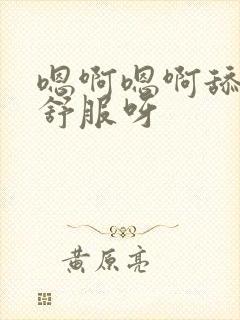 嗯啊嗯啊舔
舒服呀
黄原亮